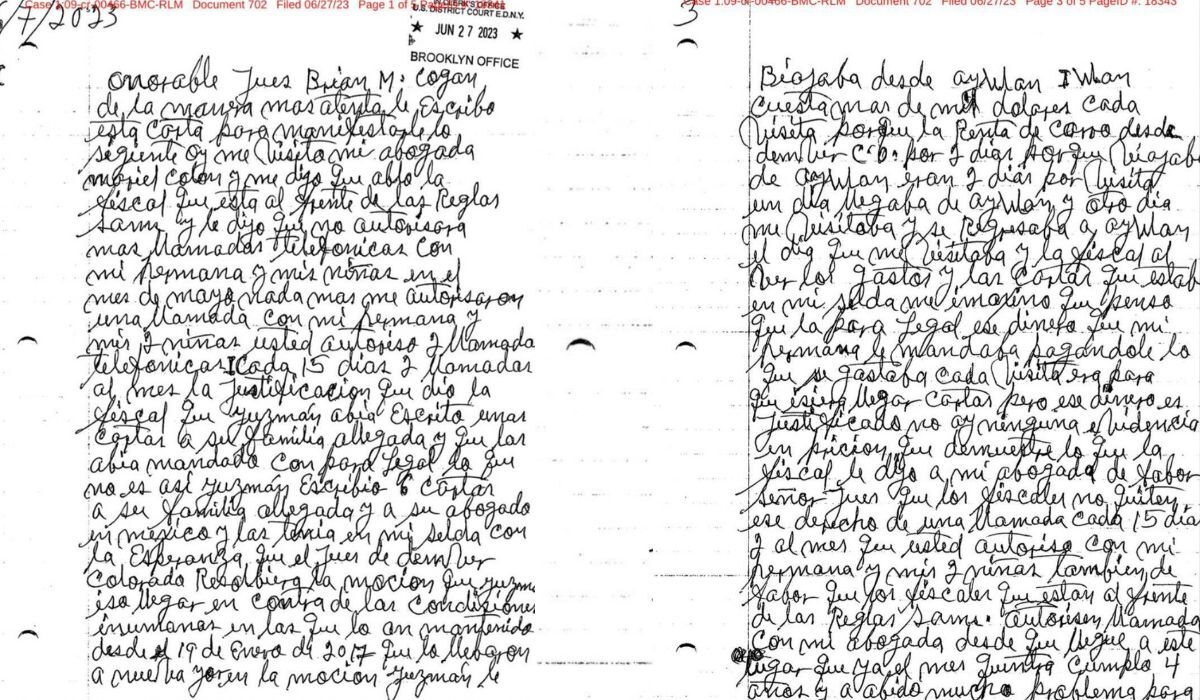 Case 1:09-cr-00466-BMC-RLM Document 702 Filed 06/27/23 Page 1 of 5
/7/2023
U.S. DISTRICT COURT E.D.N.Y.
★ JUN 27 2023 ★
BROOKLYN OFFICE
onorable Jues Brian M. Cogan
de la manera mas atenta le Escribo
esta carta para manifestarle lo
sigiente oy me visito mi abogada
mariel colon y me dijo que ablo la
fiscal que esta al frente de las Reglas
Sams y le dijo que no autorisara
mas llamadas telefonicas con
mi hermana y mis niñas en el
mes de mayo nada mas me autorisaron
una llamada con mi hermana y
mis 2 niñas usted autoriso 2 llamada
telefonicas 1 Cada 15 dias 2 llamadas
al mes la Justificacion que dio la
fiscal que guzmán abia Escrito unas
cartas a su familia allegada y que las
abia mandado con para legal lo que
no es asi guzmán Escribio 6 cartas
a su familia allegada y a su abogado
en mexico y las tenia en mi selda con
la Esperanza que el Jues de demVer
colorado Resolbiera la mocion que guzm
iso llegar en contra de las condisiones
inumanas en las que lo an mantenido
desde el 19 de Enero de 2017 que lo llebaron
a nueva yor en la mocion guzmán le
Case 1:09-cr-00466-BMC-RLM Document 702 Filed 06/27/23 Page 3 of 5 PageID #: 18343
3
Biajaba desde ayWan I Wan
cuesta mas de mil dolares cada
visita porque la Renta de carro desde
demVer C.O. por 2 dias porque Viajaba
de ayWan eran 2 dias por Visita
un dia llegaba de ayWan y otro dia
me Visitaba y se Regresaba a ayWan
el dia que me Visitaba y la fiscal al
Ver los gastos y las cartas que estab
en mi selda me imagino que penso
que la para legal ese dinero que mi
hermana le mandaba pagandole lo
que se gastaba cada Visita era para
que isiera llegar cartas pero ese dinero es
Justificado no ay ninguna evidencia
en pricion que demuestre lo que la
fiscal le dijo a mi abogada de fabor
señor Jues que los fiscales no quiten
ese derecho de una llamada cada 15 dia
2 al mes que usted autoriso con mi
hermana y mis 2 niñas tambien de
fabor que los fiscales que estan al frente
de las Reglas Sams. autorisen llamada
con mi abogada desde que llegue a este
lugar que ya el mes cumplo 4
años y a abido mucho problema para